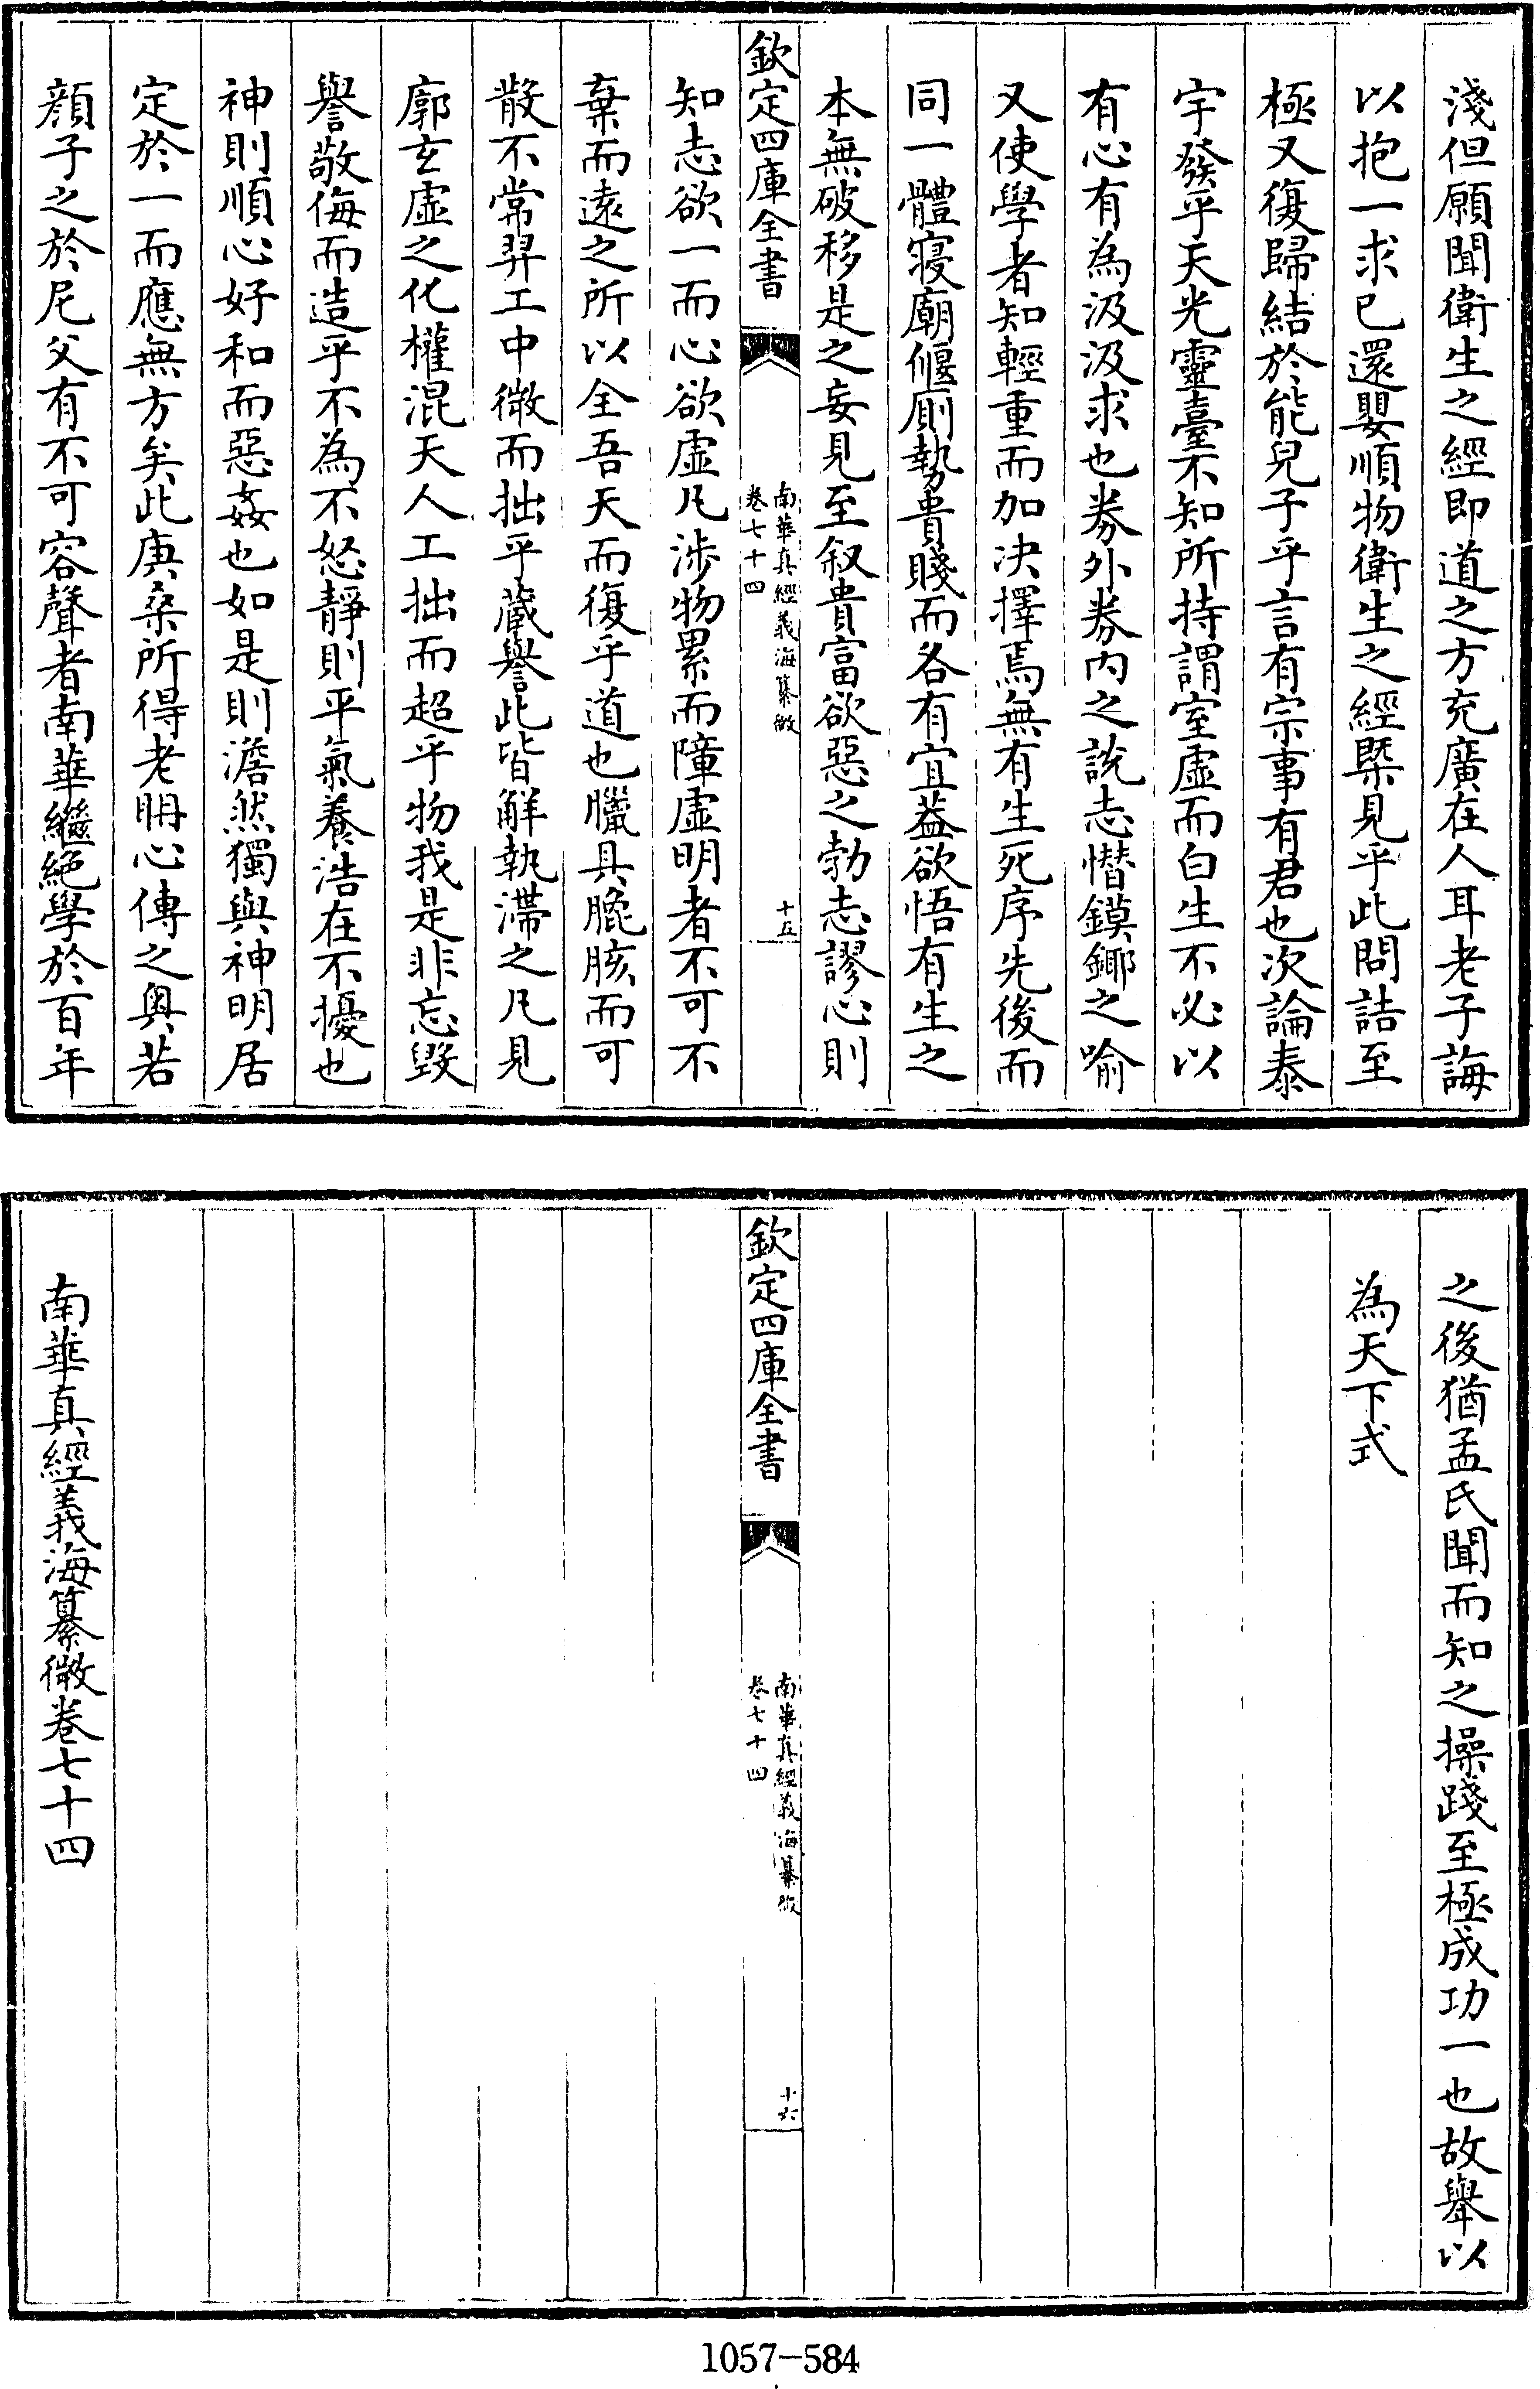 淺但願聞衛生之經即道之方充廣在人耳老子誨
以抱一求已還嬰順物衛生之經槩見乎此問詰至
極又復歸結於能兒子乎言有宗事有君也次論泰
宇發乎天光靈臺不知所持謂室虛而白生不必以
有心有為汲汲求也券外券内之說志憯鏌鎁之喻
又使學者知輕重而加决擇焉無有生死序先後而
同一體寢廟偃厠勢貴賤而各有宜葢欲悟有生之
本無破移是之妄見至叙貴富欲惡之勃志謬心則
欽定四庫全書
南華真經義海纂微
卷七十四
十五
知志欲一而心欲虛凡涉物累而障虛明者不可不
棄而遠之所以全吾天而復乎道也臘具膍胲而可
散不常羿工中微而拙乎藏譽此皆解執滯之凡見
廓玄虛之化權混天人工拙而超乎物我是非忘毀
譽敬侮而造乎不為不怒靜則平氣養浩在不擾也
神則順心好和而惡姦也如是則澹然獨與神明居
定於一而應無方矣此庚桑所得老聃心傳之奥若
顔子之於尼父有不可容聲者南華繼絶學於百年
之後猶孟氏聞而知之操踐至極成功一也故舉以
為天下式
欽定四庫全書
南華真經義海纂微
卷七十四
十六
南華真經義海纂微卷七十四
1057-584